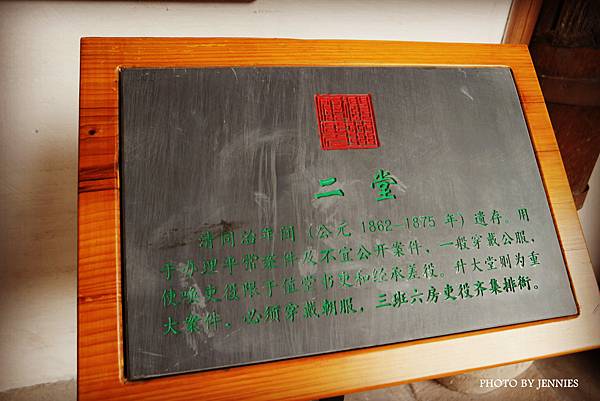 二堂
清同治年间 (公元 1862-1875 年) 遗存。用
于办理平常案件及不宜公开案件，一般穿戴公服，
使唤吏役限于值堂书吏和经承差役。升大堂则为重
大案件，必须穿戴朝服，三班六房吏役齐集排衙。
PHOTO BY JENNIES